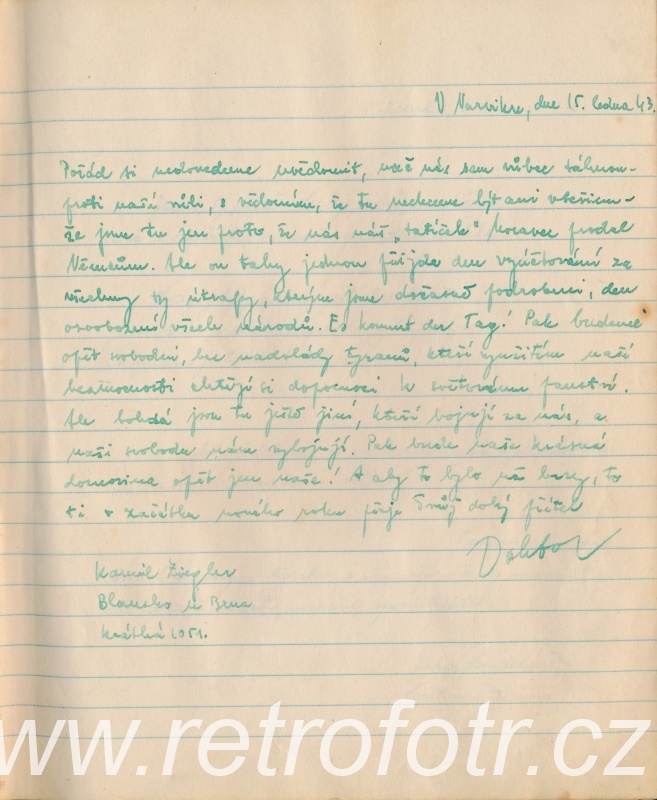 V Narviku, dne 15. ledna 43.
Pořád si nedovedeme uvědomit, nač nás sem vůbec
proti naší vůli, s vědomím, že tu nechceme být ani vteřinu -
že jsme tu jen proto, že nás náš „tatíček" Moravec prodal
Němcům. Ale on taky jednou přijde den vyúčtování za
všechny ty útrapy, kterým jsme dočasně podrobeni, den
osvobození všech národů. Es kommt der Tag! Pak budeme
opět svobodni, bez nadvlády tyranů, kteří využitím naší
bezmocnosti chtějí si dopomoci k světovému panství.
Ale bohdá jsou tu ještě jiní, kteří bojují za nás, a
naši svobodu nám vybojují. Pak bude naše krásná
domovina opět jen naše! A aby to bylo už brzy, to
Ti v začátku nového roku přeje Tvůj dobrý přítel
Doktor
Kamil Ziegler
Blansko u Brna
Krátká 1051.
www.retrofotr.cz